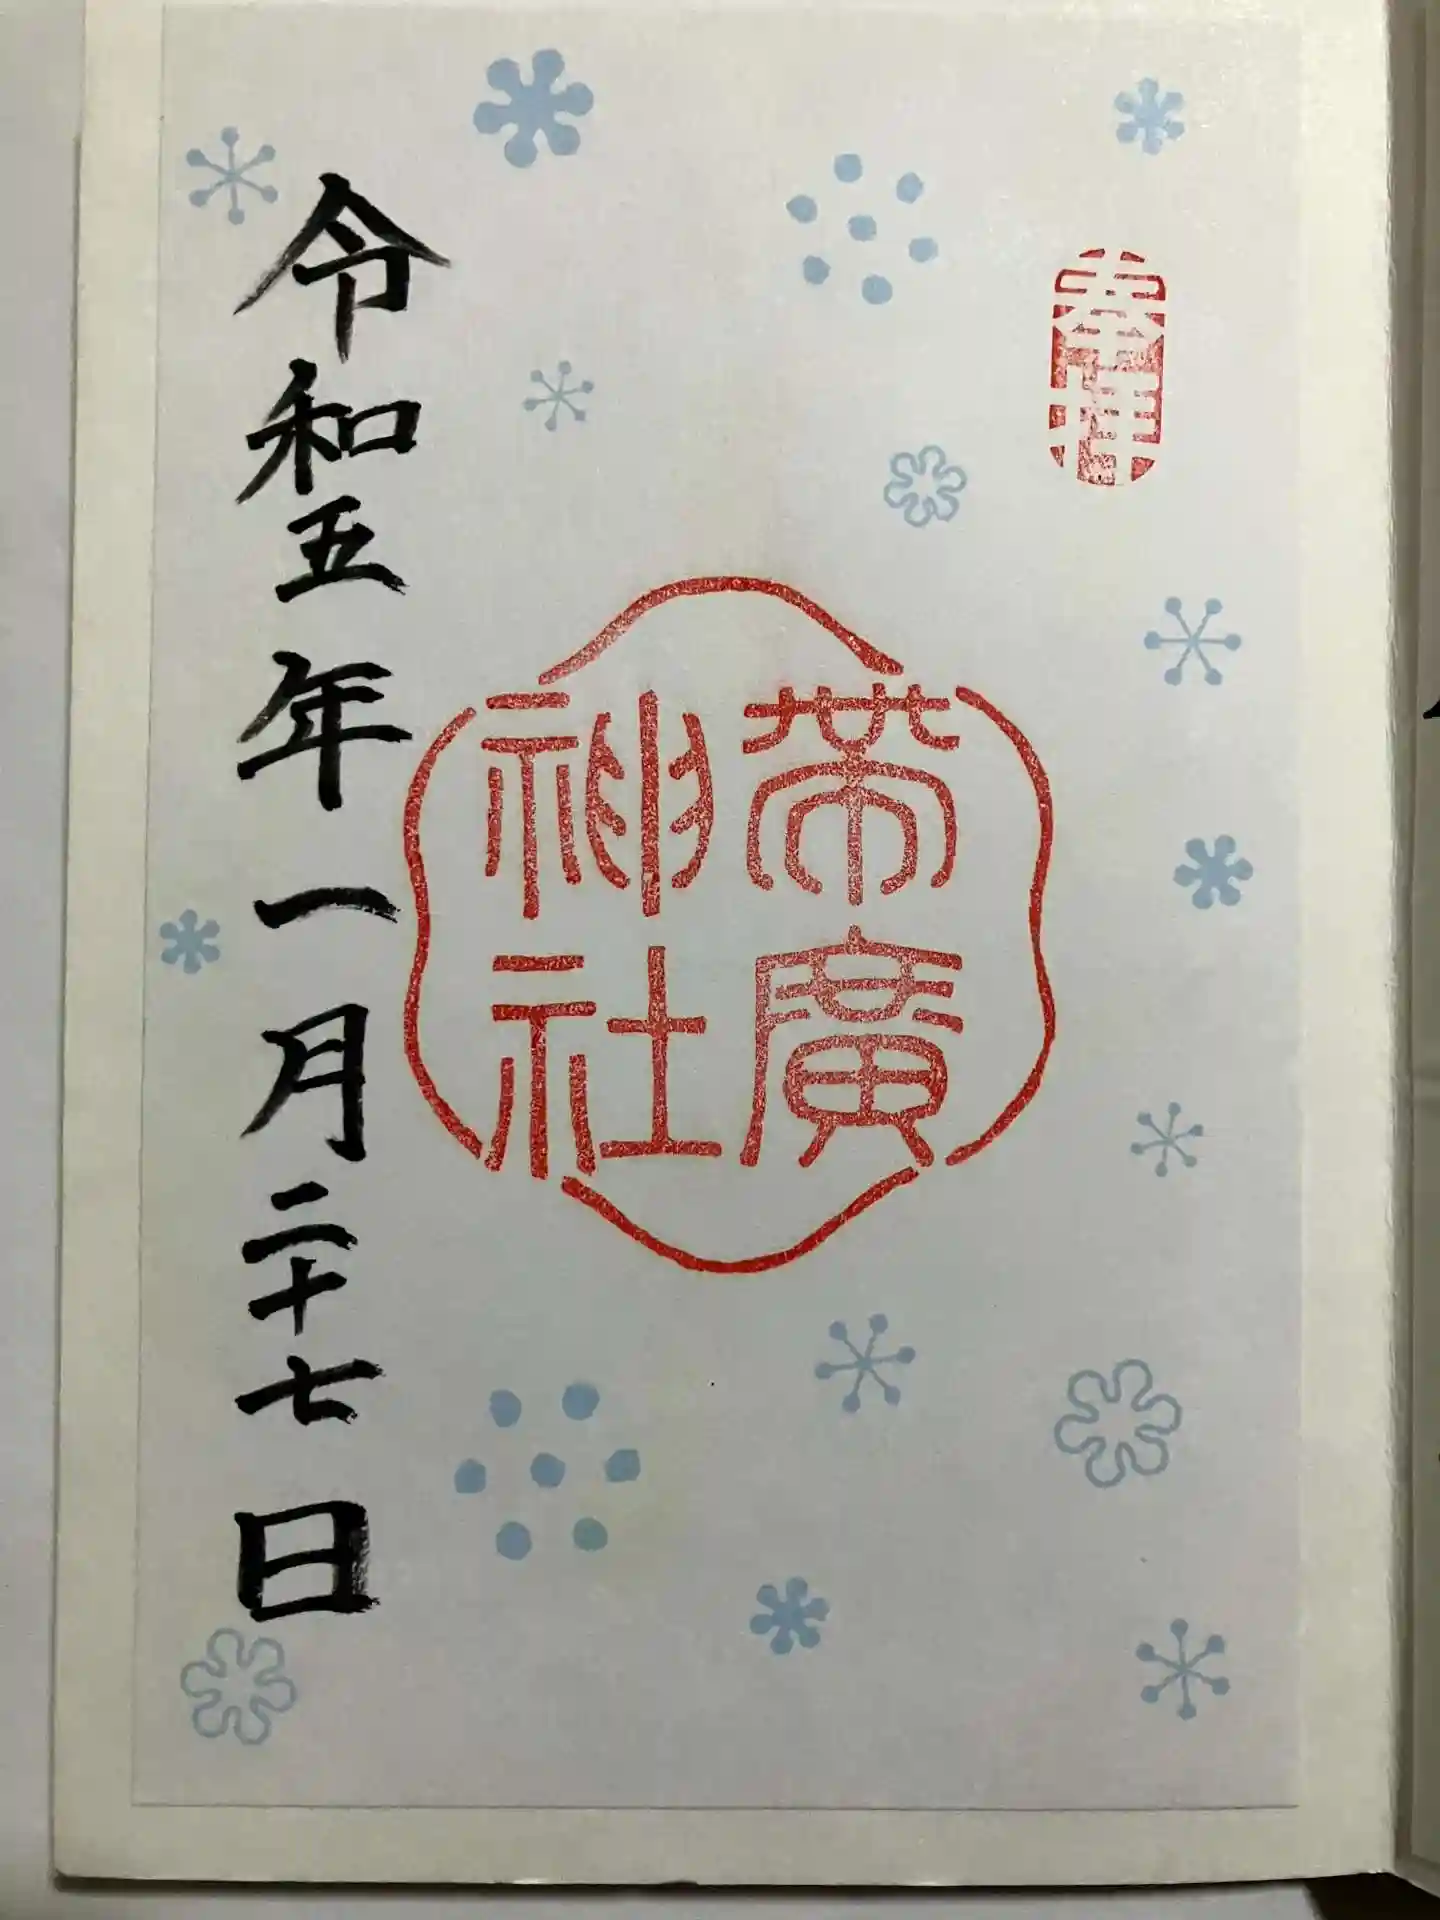 奉拝
帯廣
神社
令和五年一月二十七日